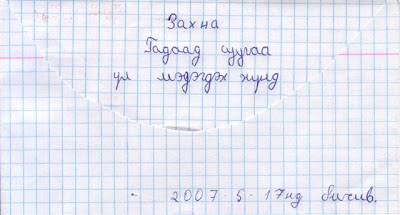 Захиа
Гадаад сууgaa
үл мэдэгдэх хүнд
2007-5-17нд бичив.